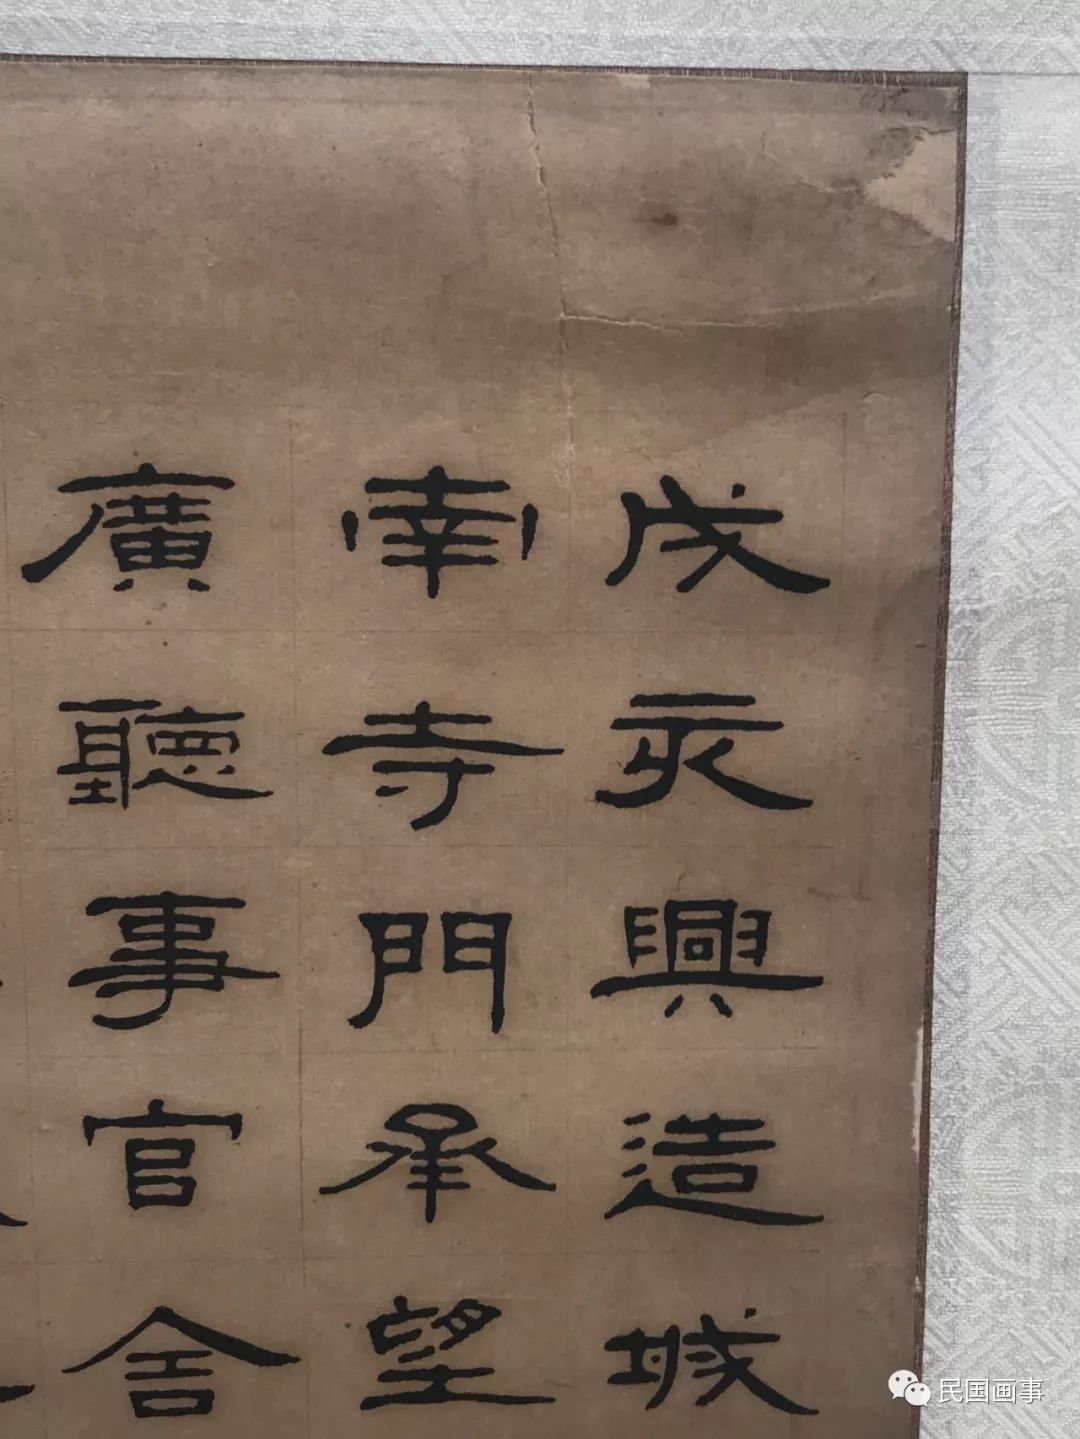 成永興造城
南寺門承望
廣聽事官舍
民国画事